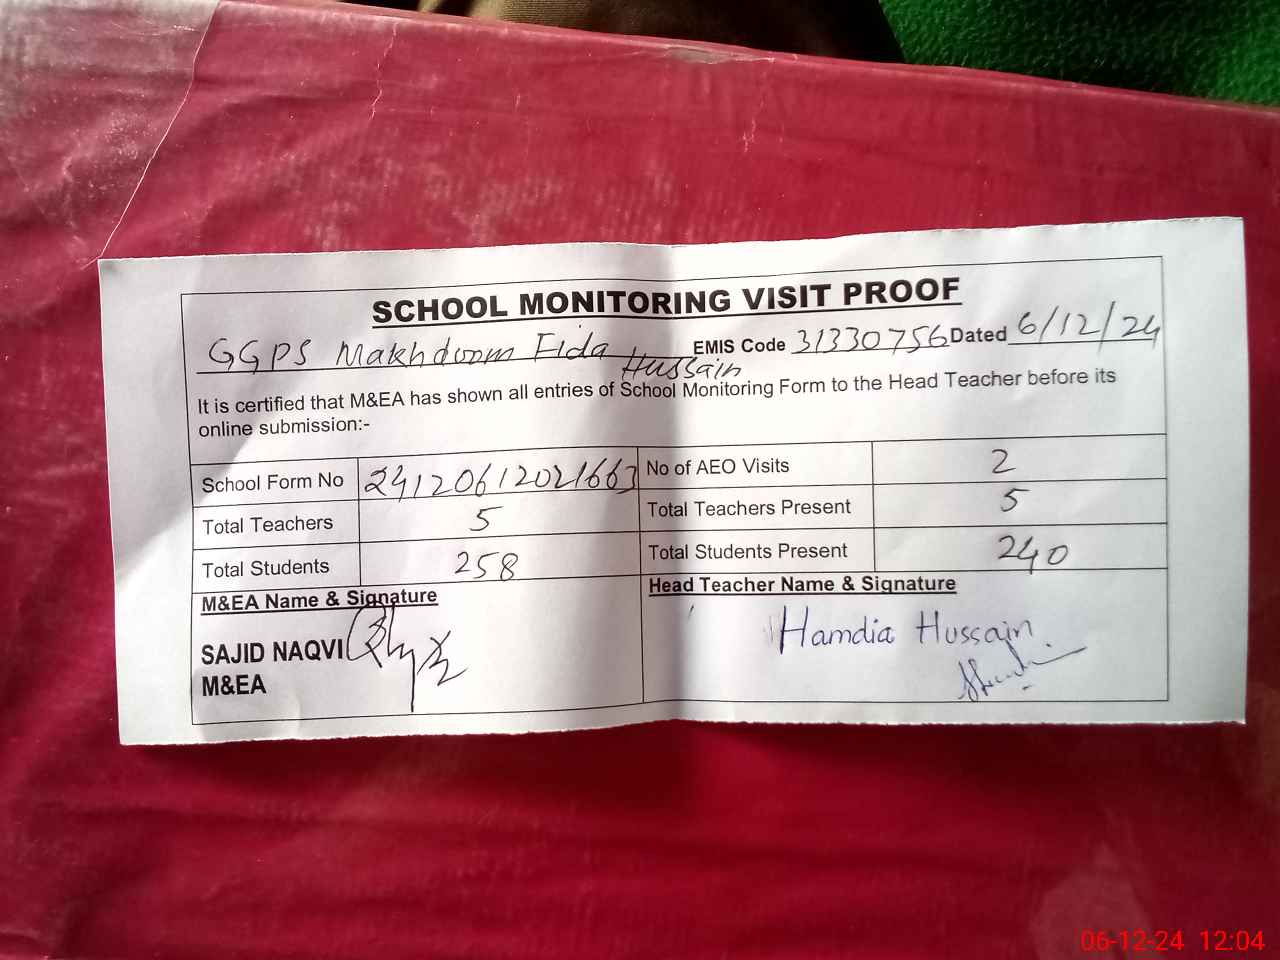 SCHOOL MONITORING VISIT PROOF
GGPS Makhdoom Fida Hussain EMIS Code 31330756 Dated 6/12/24
It is certified that M&EA has shown all entries of School Monitoring Form to the Head Teacher before its
online submission:-
School Form No 24120612021663 No of AEO Visits 2
Total Teachers 5 Total Teachers Present 5
Total Students 258 Total Students Present 240
M&EA Name & Signature Head Teacher Name & Signature
SAJID NAQVI Hamdia Hussain
M&EA
06-12-24 12:04